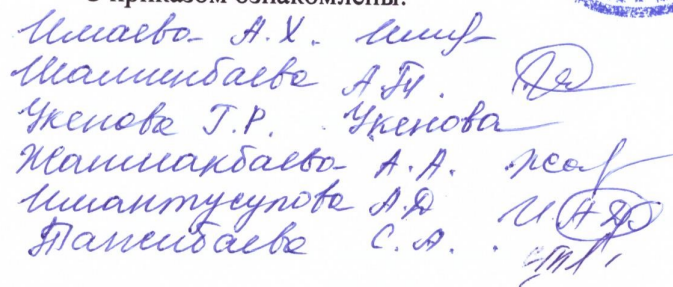 С приказом ознакомлены:
Имаева А.Х.
Шалинбаева А.Т.
Укенова Г.Р. Укенова
Жанакбаева А.А.
Имантусупова А.Д
Тажибаева С.А.